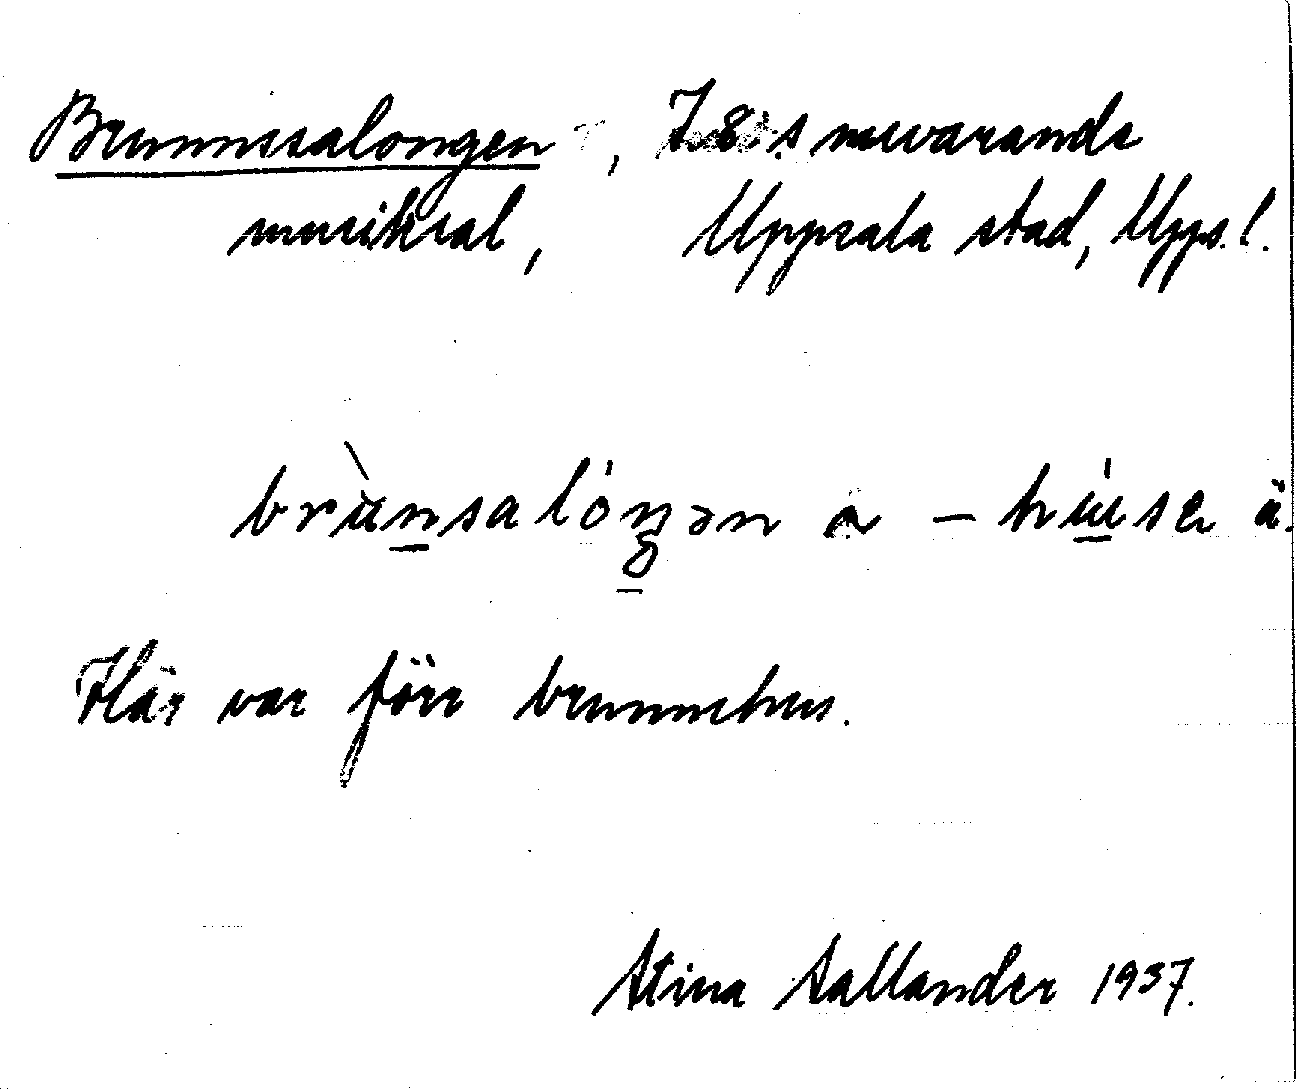 Brunnssalongen, I 8:s nuvarande
musiksal, Uppsala stad, Upps. l.
brùnsalóŋən a - húsə ä.
Här var förr brunnshus.
Stina Sallander 1937.